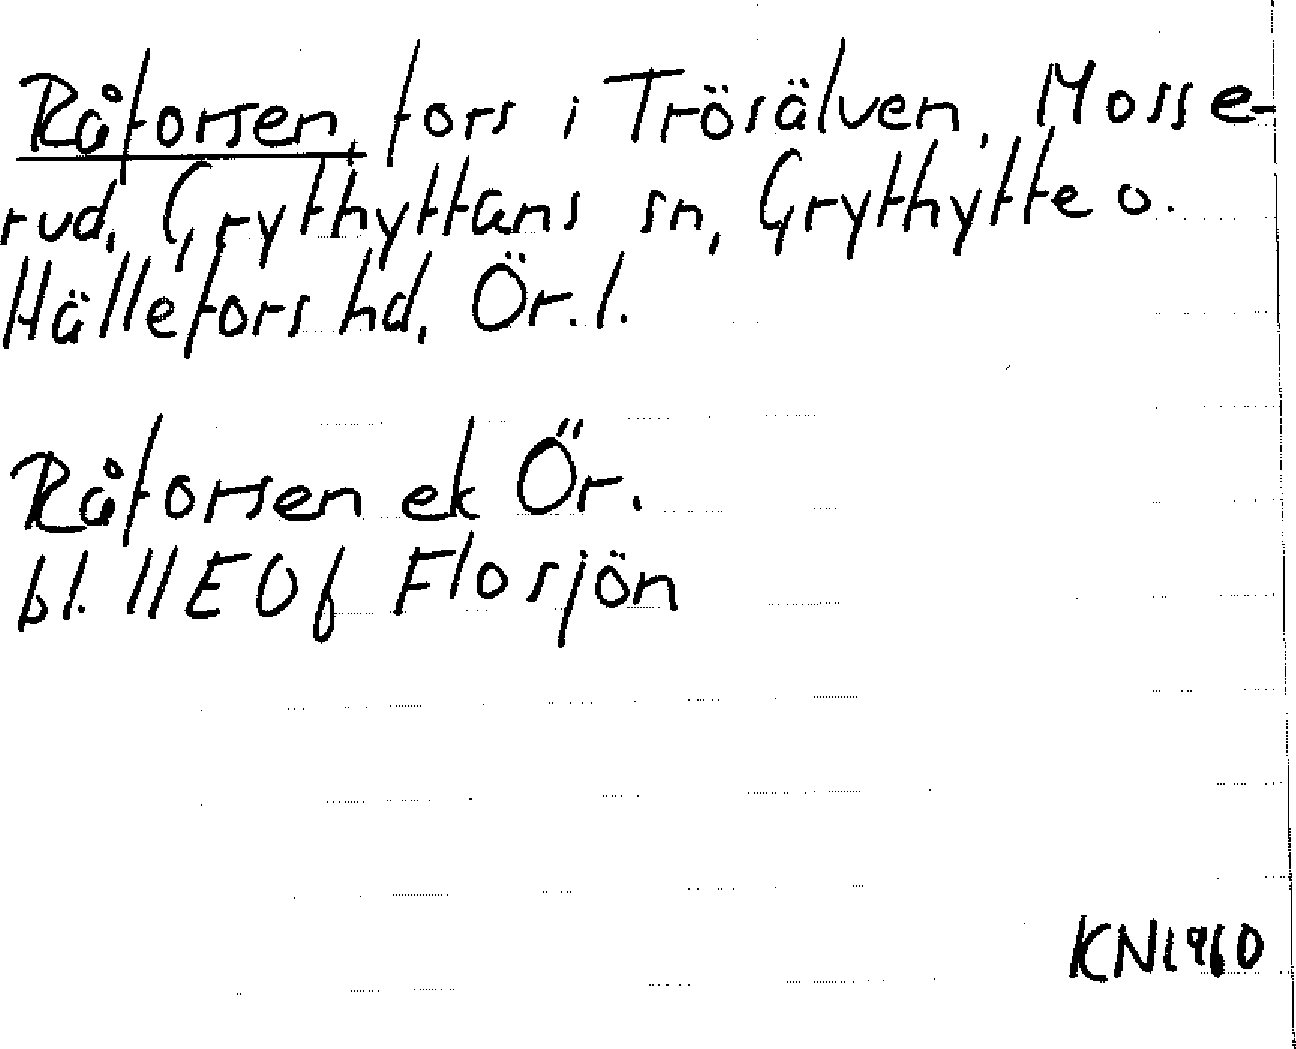 Råforsen, fors i Trösälven, Mosse-
rud, Grythyttans sn, Grythytte o.
Hällefors hd, Ör. l.
Råforsen ek Ör.
bl. 11E0f Flosjön
KN1960